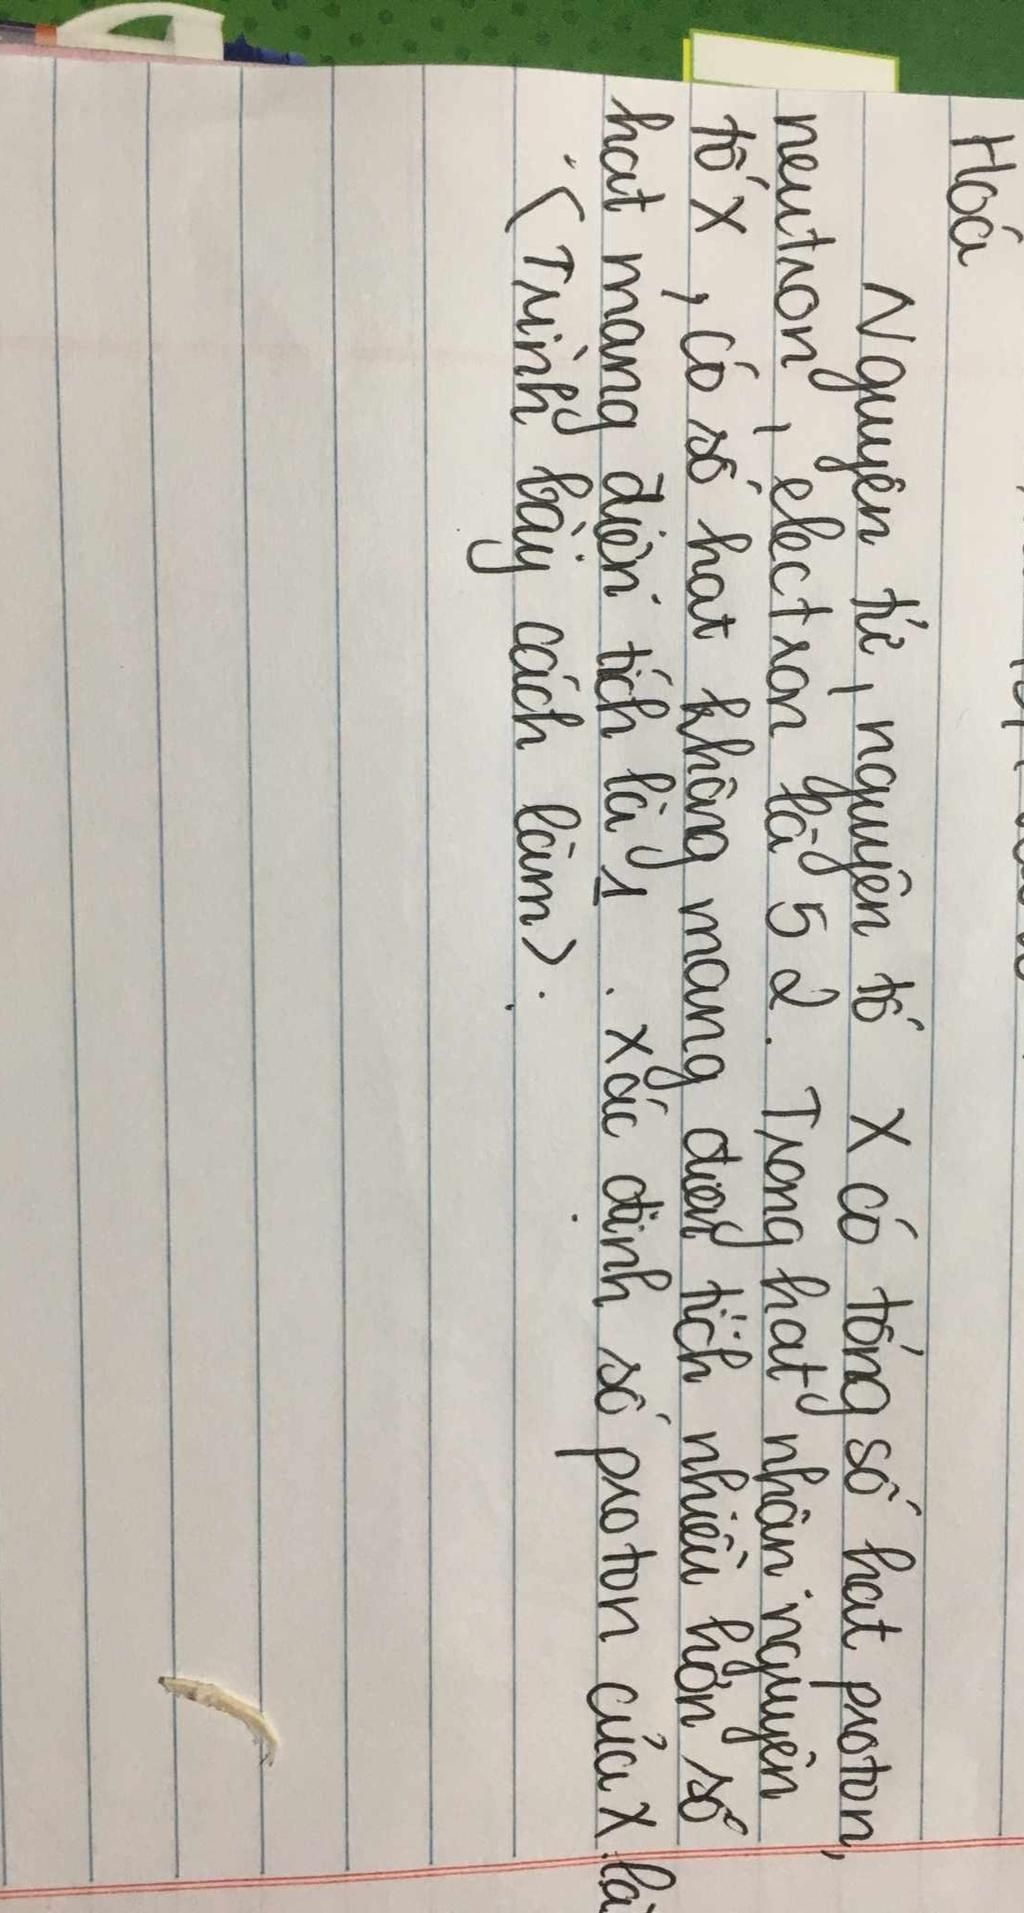 Hoá
Nguyên tử, nguyên tố X có tổng số hat proton,
neutron, electron là 52. Trong hat nhân nguyên
tố X, có số hat không mang điện tích nhiều hơn số
hat mang điện tích là 1. Xác định số proton của X là
(Trình bày cách làm).